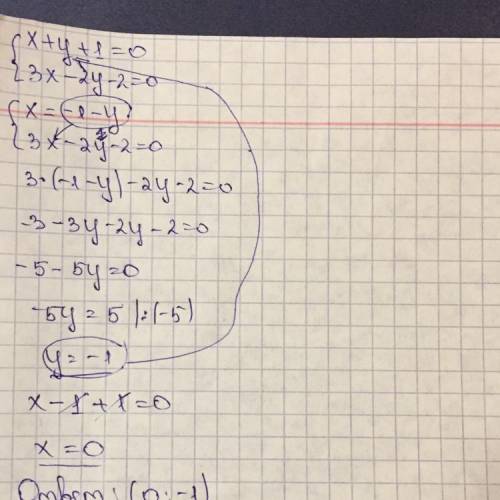 { x+y+1=0
{ 3x-2y-2=0
{ x=-1-y
{ 3x-2y-2=0
3·(-1-y)-2y-2=0
-3-3y-2y-2=0
-5-5y=0
-5y=5 |:(-5)
y=-1
x-1+1=0
x=0
Ответ: (0;-1)